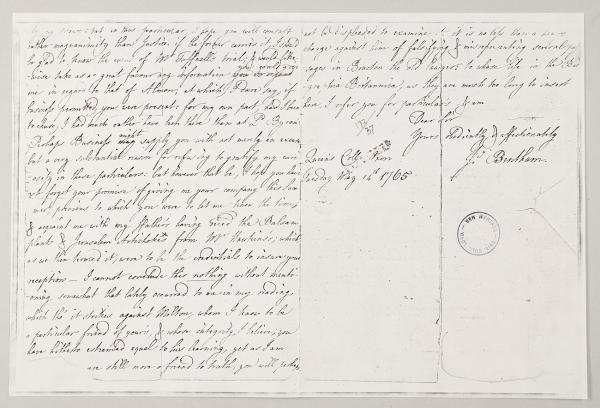 in this particular, I hope you will consult
rather magnanimity than Justice, if the former carries it, I should
be glad to know the event of Mr Tuffnell's trial, & would like-
wise take as a great favour any information you would give
me in regard to that of Almon, at which, I dare say, if
business permitted, you were present: for my own part, had I been
to chuse, I had much rather have been there than at P. Byron's
Perhaps Business might supply you with not merely an excuse
but a very substantial reason for refusing to gratify my curi-
osity in these particulars: but however that be, I hope you have
not forgot your promise of giving me your company this Sum-
mer, previous to which you were to let me know the time,
& acquaint me with my Father's having recd the Balsam
plants & Jerusalem Artichokes from Mr Hawkins; which,
as we then termed it, were to be the credentials to insure your
reception — I cannot conclude this nothing without menti-
oning somewhat that lately occurred to me in my reading,
which tho' it strikes against Milton, whom I know to be
a particular friend of yours, & whose integrity, I believe, you
have hitherto esteemed equal to his learning, yet as I am
are still more a friend to truth, you will, perhaps
not be displeased to examine it, it is no less than a
charge against him of falsifying & misrepresenting several pas-
sages in
Britannia, as they are much too long to insert
here, I refer you for particulars & am
Dear Sir
Yours Obediently & Affectionately
Jy. Bentham.
Queen's Coll. Oxon
Tuesday May 14th 1765